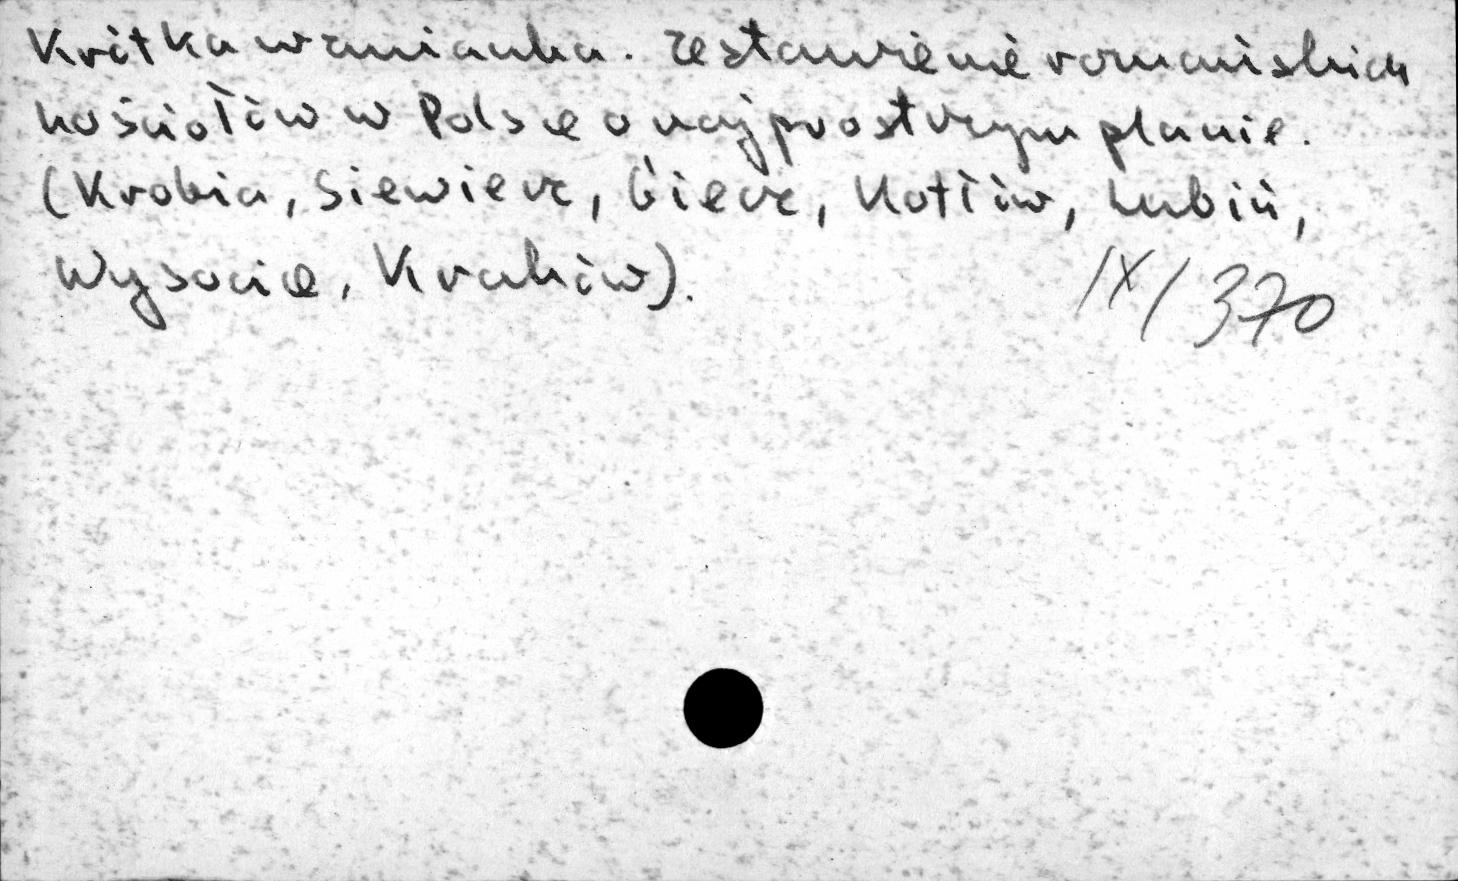 Krótka wzmianka. Zestawienie romańskich
kościołów w Polsce o najprostszym planie.
(Krobia, Siewierz, Giecz, Kotłów, Lubiń,
Wysocice, Kraków).
IX/370